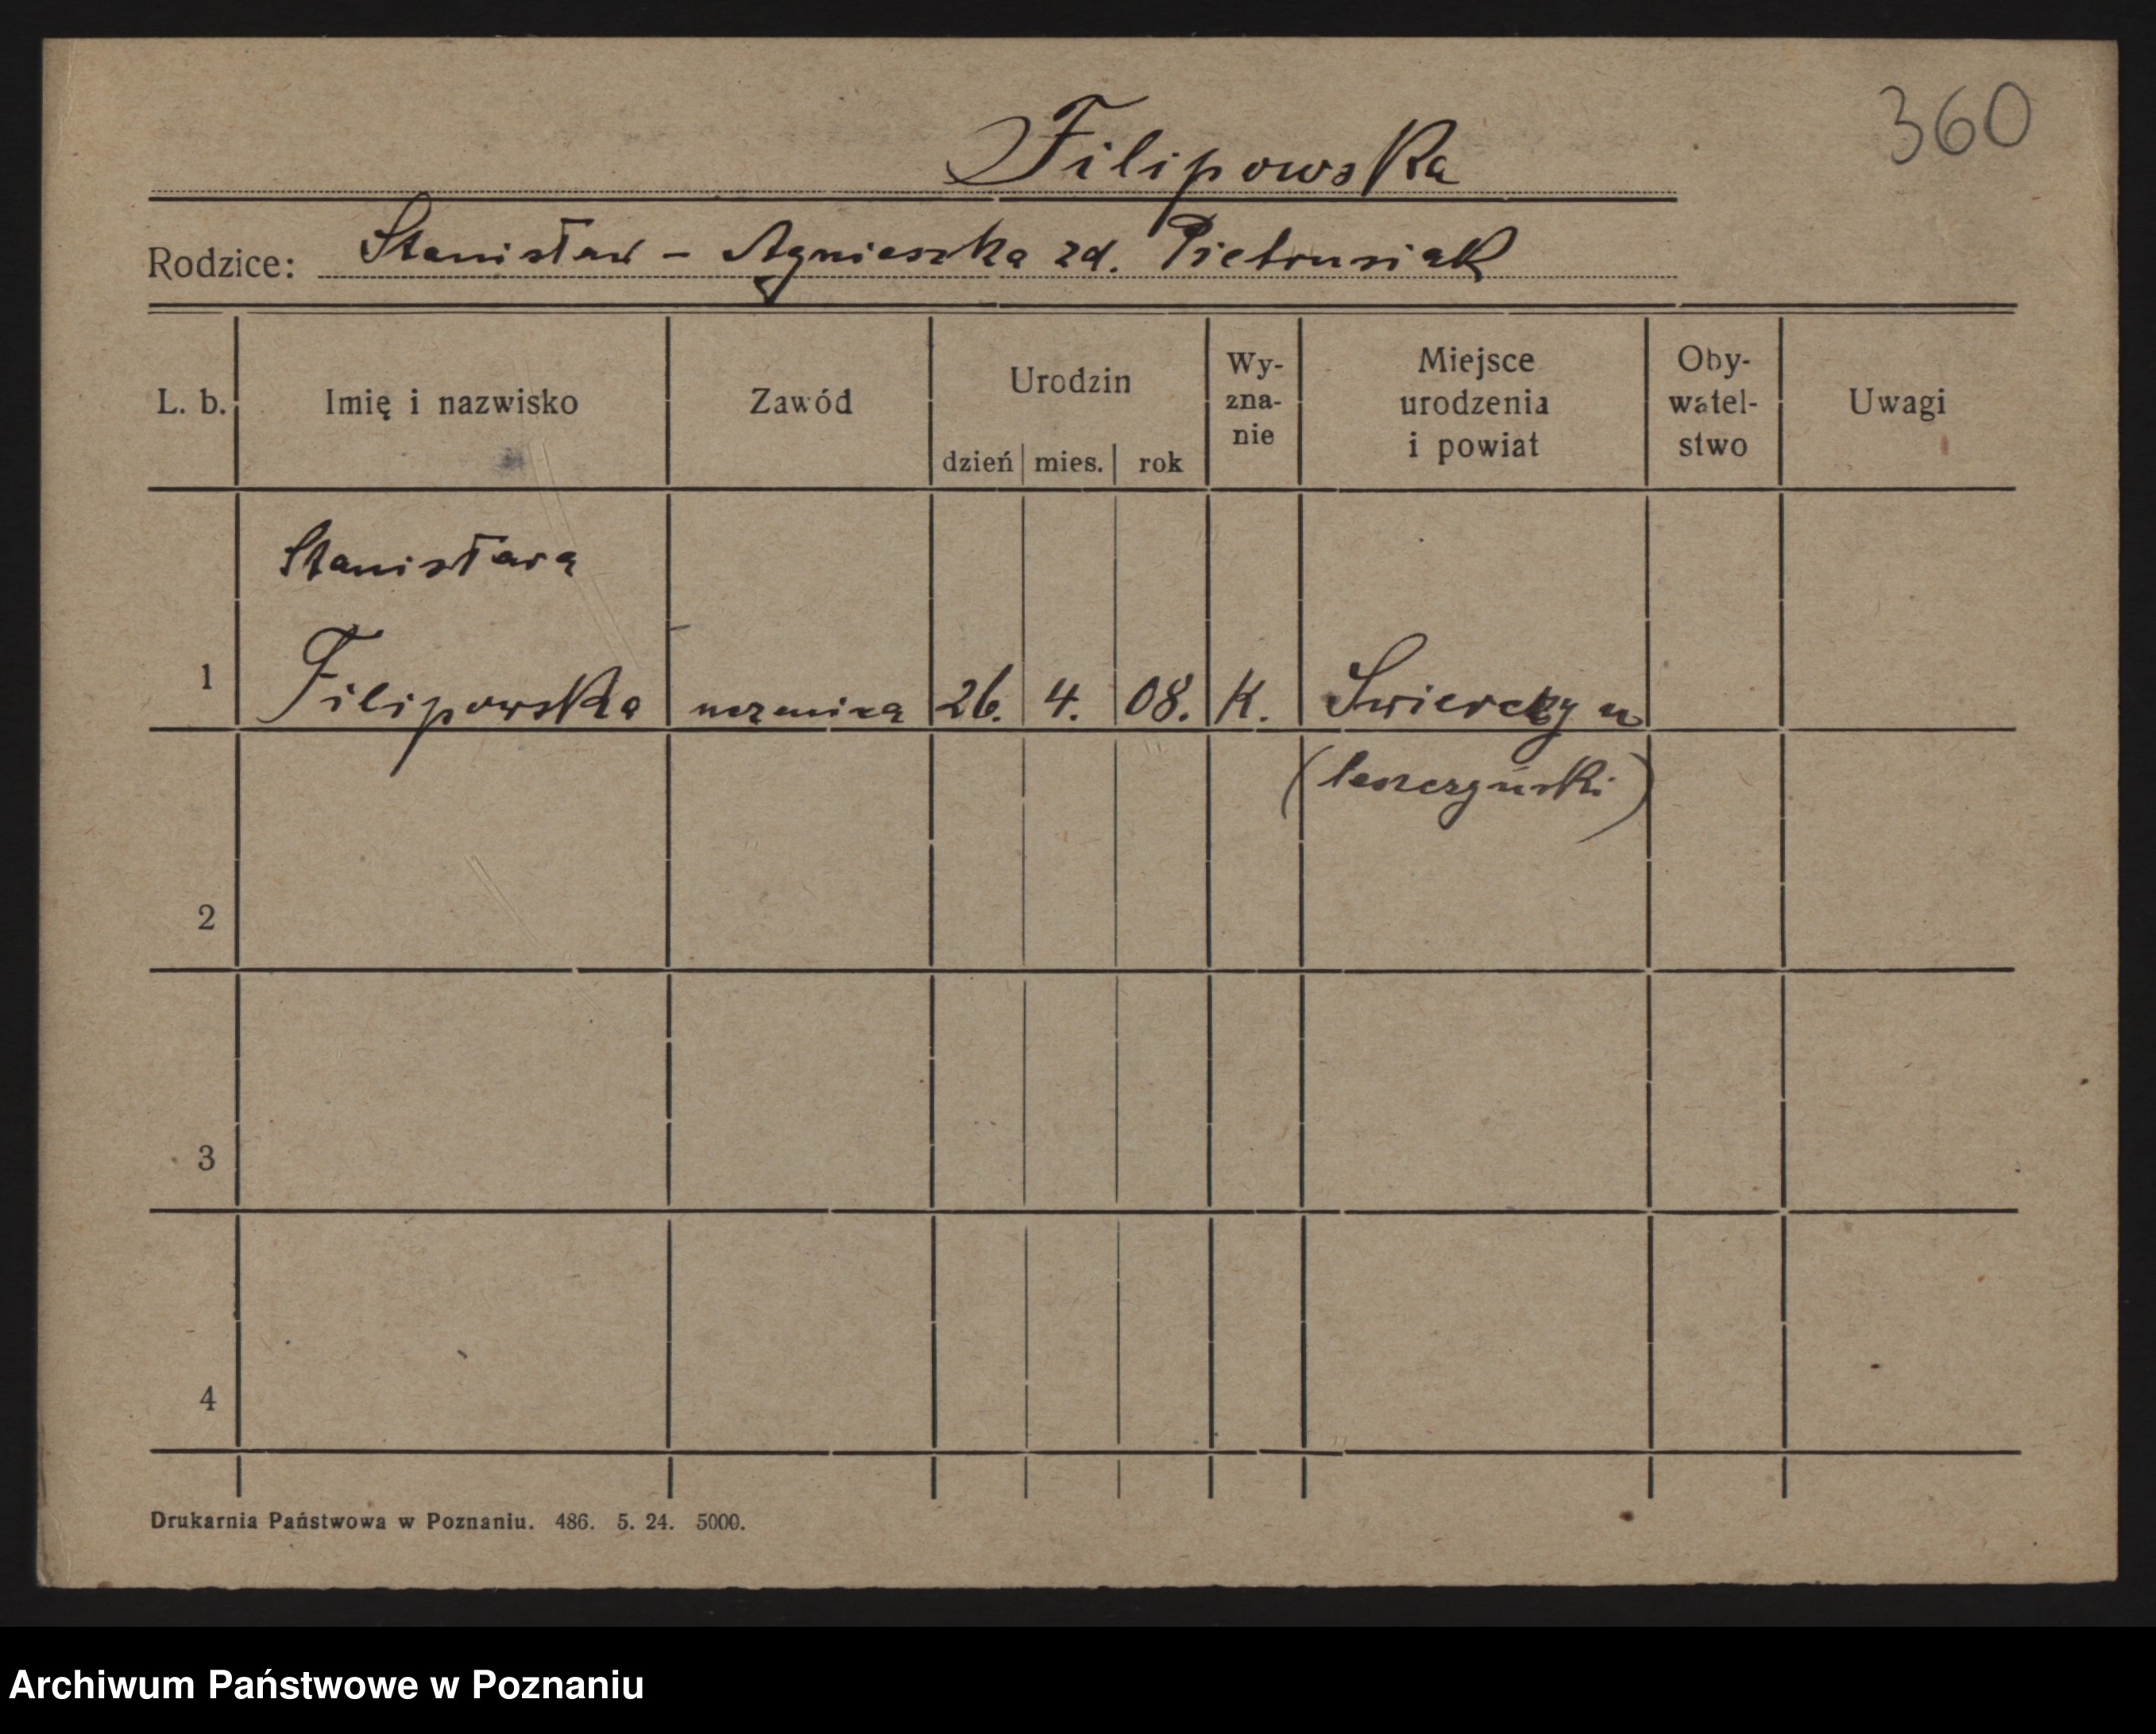 360
Filipowska
Rodzice: Stanisław – Agnieszka zd. Pietrusiak
L. b. Imię i nazwisko Zawód Urodzin dzień mies. rok Wy-zna-nie Miejsce urodzenia i powiat Oby-watel-stwo Uwagi
Stanisława
1 Filipowska uczenica 26. 4. 08. K. Swierczyn
(leszczyński)
2
3
4
Drukarnia Państwowa w Poznaniu. 486. 5. 24. 5000.
Archiwum Państwowe w Poznaniu